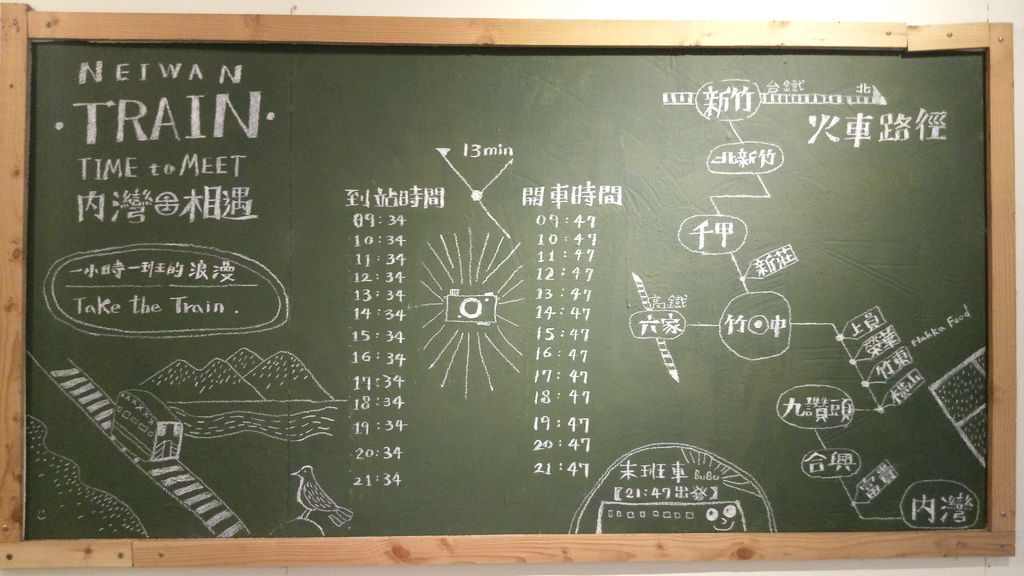 NEIWAN
TRAIN
TIME to MEET
內灣相遇
一小時一班的浪漫
Take the Train.
13min
到站時間
09:34
10:34
11:34
12:34
13:34
14:34
15:34
16:34
17:34
18:34
19:34
20:34
21:34
開車時間
09:47
10:47
11:47
12:47
13:47
14:47
15:47
16:47
17:47
18:47
19:47
20:47
21:47
末班車 BuBu
【21:47出發】
台鐵 北
新竹
火車路徑
北新竹
千甲
新莊
高鐵
六家
竹中
上員
榮華
竹東 Hakka Food
橫山
九讚頭
合興
富貴
內灣